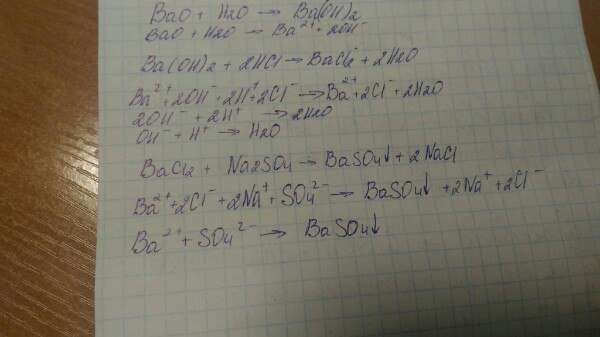 BaO + H2O → Ba(OH)2
BaO + H2O → Ba²⁺ + 2OH⁻
Ba(OH)2 + 2HCl → BaCl2 + 2H2O
Ba²⁺ + 2OH⁻ + 2H⁺ + 2Cl⁻ → Ba²⁺ + 2Cl⁻ + 2H2O
2OH⁻ + 2H⁺ → 2H2O
OH⁻ + H⁺ → H2O
BaCl2 + Na2SO4 → BaSO4↓ + 2NaCl
Ba²⁺ + 2Cl⁻ + 2Na⁺ + SO4²⁻ → BaSO4↓ + 2Na⁺ + 2Cl⁻
Ba²⁺ + SO4²⁻ → BaSO4↓